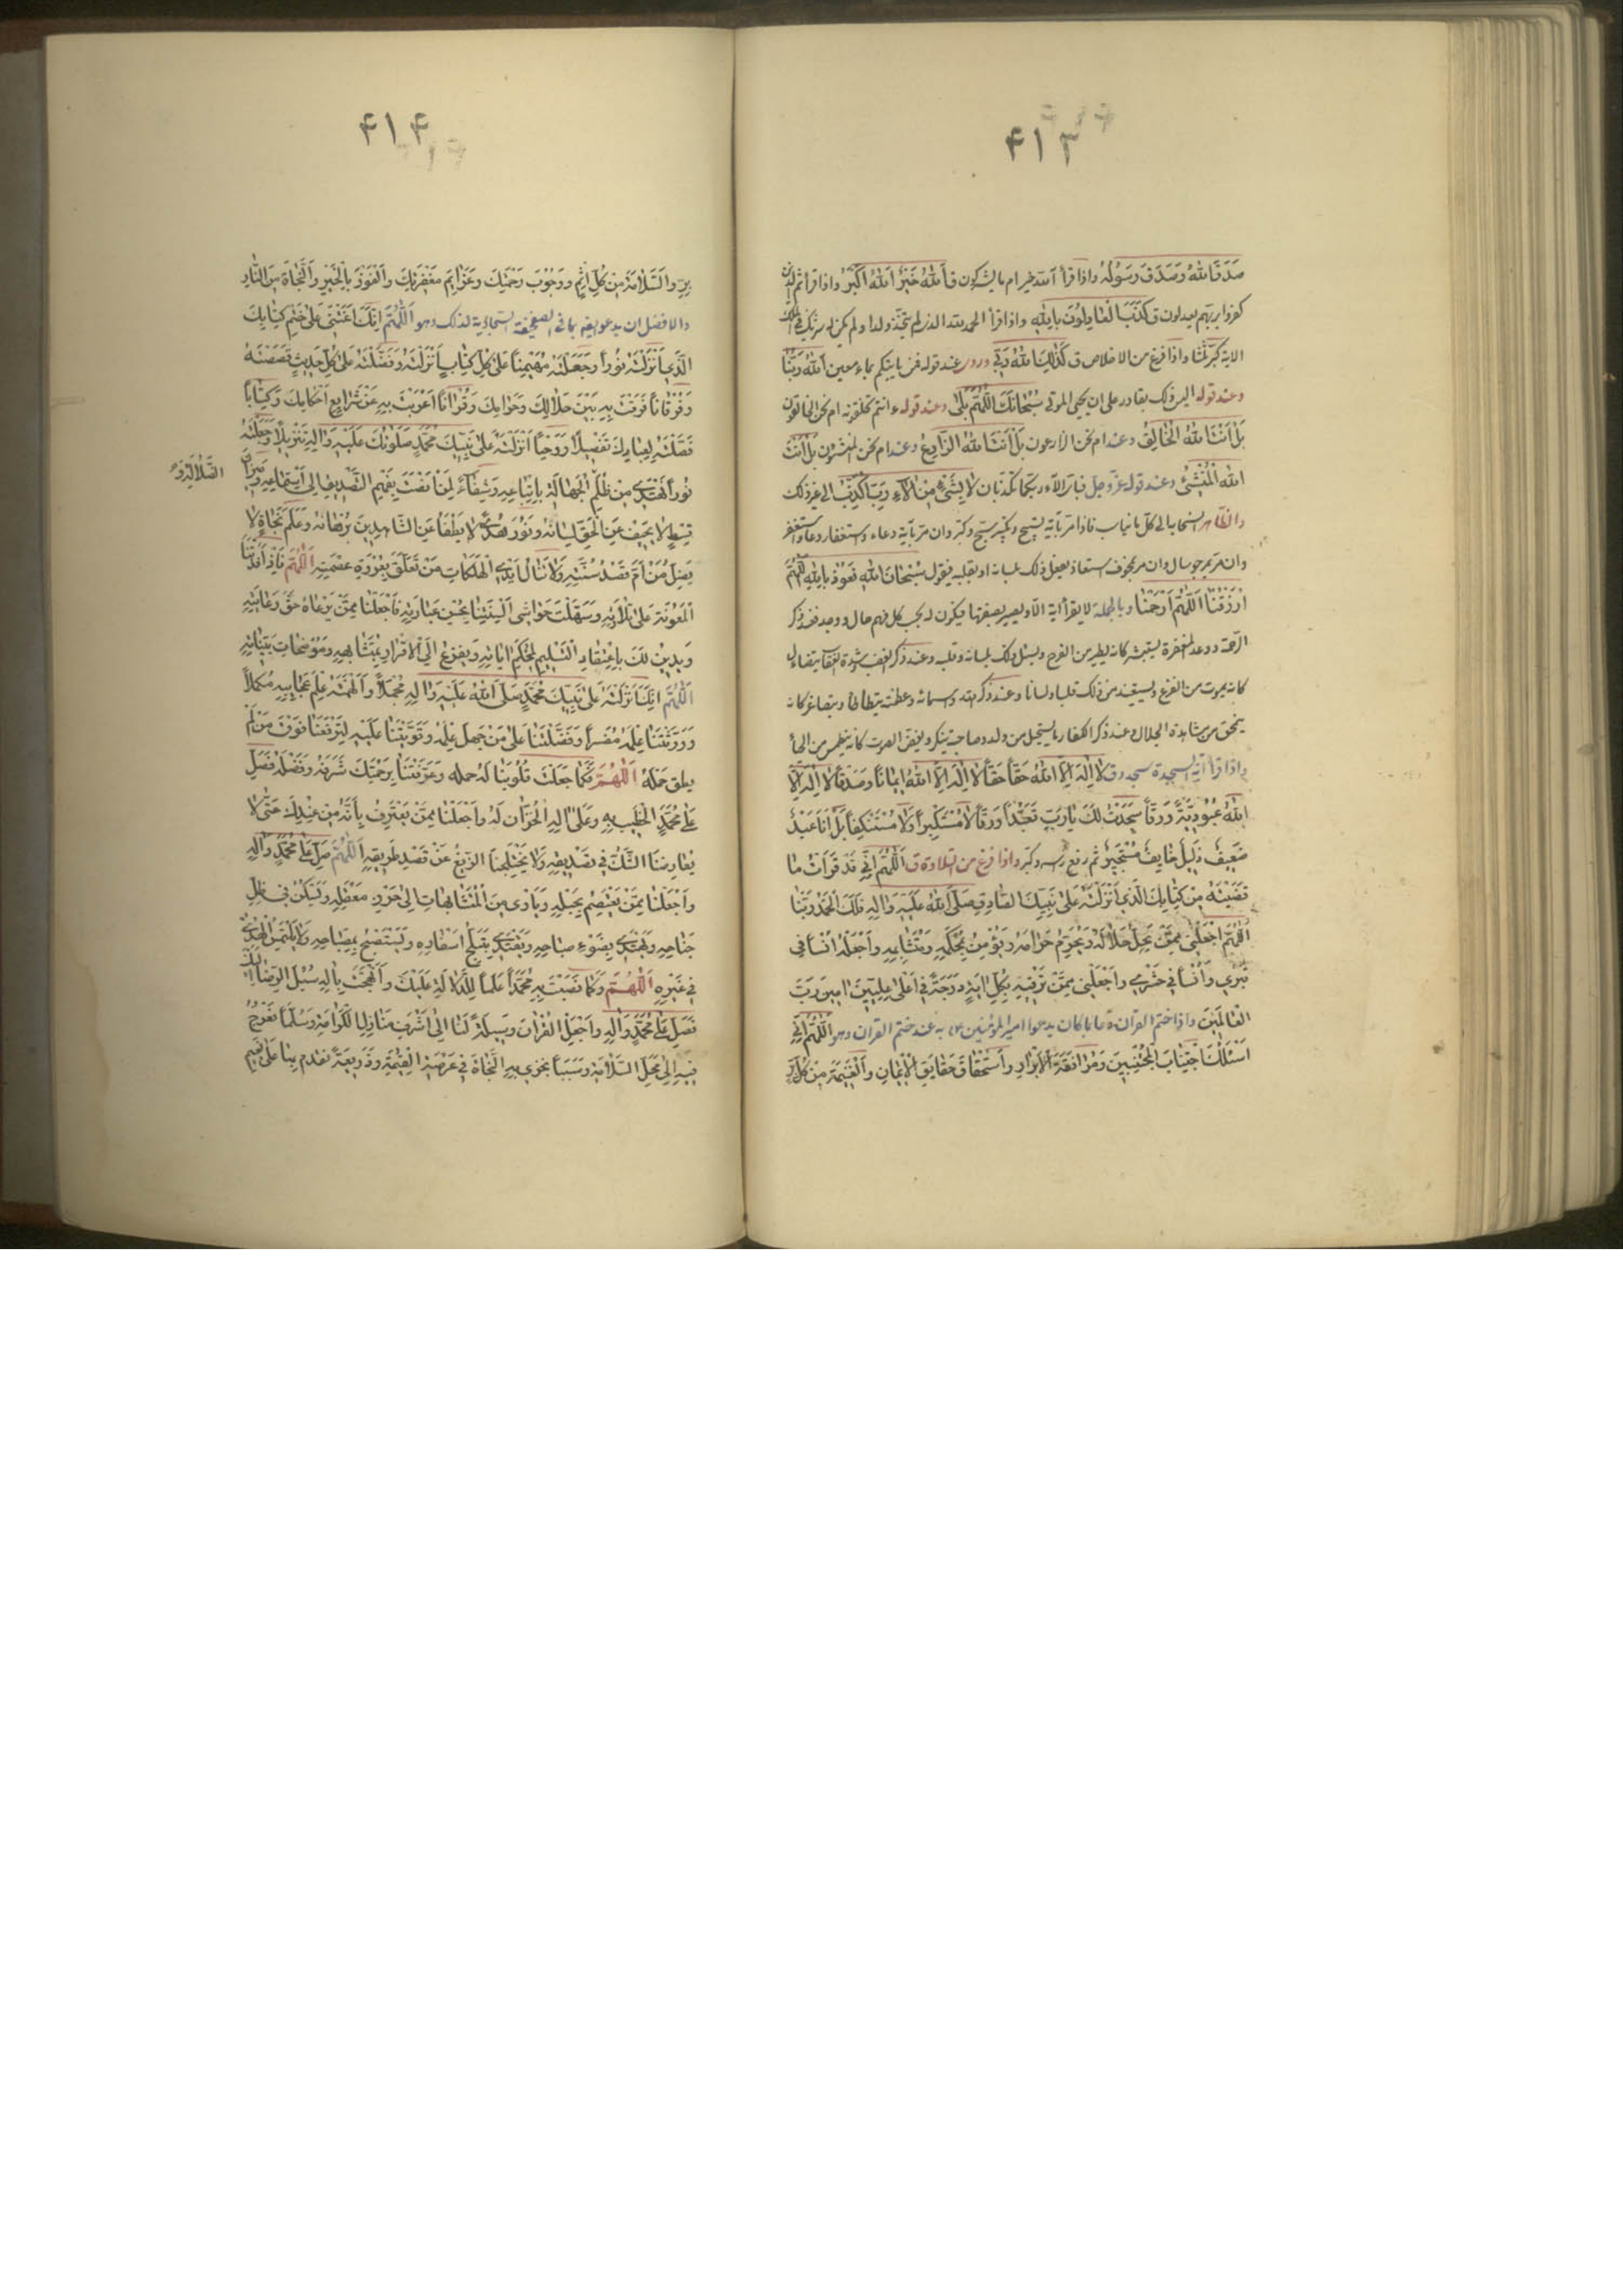 ۴۱۳
صَدَقَ اللهُ وَصَدَقَ رَسُولُهُ واذا قرأ آلله خير ام ما يشركون ق اَللهُ خَيْرٌ اَللهُ اَكْبَرُ واذا قرأ ثم الذين
كفروا بربهم يعدلون ق كَذَبَ الْعادِلُونَ بِاللهِ واذا قرأ الحمد لله الذي لم يتخذ ولدا ولم يكن له شريك في الملك
الاية كبر ثلثا واذا فرغ من الاخلاص ق كَذلِكَ اللهُ رَبّي عند قوله فمن ياتيكم بماء معين اَللهُ رَبُّنا
وعند قوله اليس ذلك بقادر على ان يحيي الموتى سُبْحانَكَ اللّهُمَّ بَلى وعند قوله ءانتم تخلقونه ام نحن الخالقون
بَلْ اَنْتَ اللهُ الْخالِقُ وعند ام نحن الزارعون بَلْ اَنْتَ اللهُ الزّارِعُ وعند ام نحن المنشئون بَلْ اَنْتَ
اللهُ الْمُنْشِئُ وعند قوله عز وجل فباى الآء ربكما تكذبان لا بِشَيْءٍ مِنْ الآءِ رَبِّ اُكَذِّبُ الى غير ذلك
والظاهر استحبابه في كل ما يناسب فاذا مر بآية تسبيح وتكبير سبح وكبر وان مر بآية دعاء واستغفار دعا واستغفر
وان مر بمرجو سال وان مر بمخوف استعاذ يفعل ذلك بلسانه او بقلبه فيقول سُبْحانَ اللهِ نَعُوذُ بِاللهِ اللّهُمَّ
ارْزُقْنا اَللّهُمَّ ارْحَمْنا وبالجملة لا يقرأ اية الا ويصير بصفتها فيكون له بحسب كل فهم حال ووجد فعند ذكر
الرحمة ووعد المغفرة يستبشر كانه يطير من الفرح ويسئل ذلك بلسانه وقلبه وعند ذكر الغضب وشدة العقاب يتضاءل
كانه يموت من الفزع ويستعيذ من ذلك قلبا ولسانا وعند ذكر الله واسمائه وعظمته يتطاطأ ويتصاغر كانه
يمحق من مشاهدة الجلال وعند ذكر الكفار ما يستحيل من ولد وصاحبة ينكر ويغض الصوت كانه ينطمس من الحيا
واذا قرأ آية السجدة سجد وق لا اِلهَ اِلاَّ اللهُ حَقًّا حَقًّا لا اِلهَ اِلاَّ اللهُ اِيمانًا وَصِدْقًا لا اِلهَ اِلاَّ
اللهُ عُبُودِيَّةً وَرِقًّا سَجَدْتُ لَكَ يا رَبِّ تَعَبُّدًا وَرِقًّا لا مُسْتَكْبِرًا وَلا مُسْتَنْكِفًا بَلْ اَنَا عَبْدٌ
ضَعِيفٌ ذَلِيلٌ خائِفٌ مُسْتَجِيرٌ ثم رفع راسه وكبر واذا فرغ من التلاوة ق اَللّهُمَّ اِنّي قَدْ قَرَأْتُ ما
قَضَيْتَهُ مِنْ كِتابِكَ الَّذِي اَنْزَلْتَهُ عَلى نَبِيِّكَ الصّادِقِ صَلَّى اللهُ عَلَيْهِ وَالِهِ فَلَكَ الْحَمْدُ رَبَّنا
اَللّهُمَّ اجْعَلْنِي مِمَّنْ يُحِلُّ حَلالَهُ وَيُحَرِّمُ حَرامَهُ وَيُؤْمِنُ بِمُحْكَمِهِ وَمُتَشابِهِهِ وَاجْعَلْهُ اُنْسًا في
قَبْرِي وَاُنْسًا في حَشْرِي وَاجْعَلْنِي مِمَّنْ تُرَقِّيهِ بِكُلِّ ايَةٍ دَرَجَةً في اَعْلى عِلِّيّينَ امِينَ رَبَّ
الْعالَمِينَ واذا ختم القرآن دعا بما كان يدعو به امير المؤمنين عند ختم القران وهو اَللّهُمَّ اِنّي
اَسْئَلُكَ اِخْباتَ الْمُخْبِتِينَ وَمُرافَقَةَ الْاَبْرارِ وَاسْتِحْقاقَ حَقايِقِ الْايمانِ وَالْغَنِيمَةَ مِنْ كُلِّ بِرٍّ
۴۱۴
بِرٍّ وَالسَّلامَةَ مِنْ كُلِّ اِثْمٍ وَوُجُوبَ رَحْمَتِكَ وَعَزائِمَ مَغْفِرَتِكَ وَالْفَوْزَ بِالْخَيْرِ وَالنَّجاةَ مِنَ النّارِ
والافضل ان يدعو ايضا بما في الصحيفة السجادية لذلك وهو اَللّهُمَّ اِنَّكَ اَعَنْتَنِي عَلى خَتْمِ كِتابِكَ
الَّذِي اَنْزَلْتَهُ نُورًا وَجَعَلْتَهُ مُهَيْمِنًا عَلى كُلِّ كِتابٍ اَنْزَلْتَهُ وَفَضَّلْتَهُ عَلى كُلِّ حَدِيثٍ قَصَصْتَهُ
وَفُرْقانًا فَرَقْتَ بِهِ بَيْنَ حَلالِكَ وَحَرامِكَ وَقُرْانًا اَعْرَبْتَ بِهِ عَنْ شَرايِعِ اَحْكامِكَ وَكِتابًا
فَصَّلْتَهُ لِعِبادِكَ تَفْصِيلًا وَوَحْيًا اَنْزَلْتَهُ عَلى نَبِيِّكَ مُحَمَّدٍ صَلَواتُكَ عَلَيْهِ وَالِهِ تَنْزِيلًا وَجَعَلْتَهُ
نُورًا نَهْتَدِي مِنْ ظُلَمِ الْجَهالَةِ بِاتِّباعِهِ وَشِفاءً لِمَنْ اَنْصَتَ بِفَهْمِ التَّصْدِيقِ اِلى اسْتِماعِهِ وَمِيزانَ
الضَّلالَةِ وَ
قِسْطٍ لا يَحِيفُ عَنِ الْحَقِّ لِسانُهُ وَنُورَ هُدًى لا يُطْفَأُ عَنِ الشّاهِدِينَ بُرْهانُهُ وَعَلَمَ نَجاةٍ لا
يَضِلُّ مَنْ اَمَّ قَصْدَ سُنَّتِهِ وَلا تَنالُ اَيْدِي الْهَلَكاتِ مَنْ تَعَلَّقَ بِعُرْوَةِ عِصْمَتِهِ اَللّهُمَّ فَاِذْ اَفَدْتَنَا
الْمَعُونَةَ عَلى تِلاوَتِهِ وَسَهَّلْتَ حَواشِيَ اَلْسِنَتِنا بِحُسْنِ عِبارَتِهِ فَاجْعَلْنا مِمَّنْ يَرْعاهُ حَقَّ رِعايَتِهِ
وَيَدِينُ لَكَ بِاعْتِقادِ التَّسْلِيمِ لِمُحْكَمِ اياتِهِ وَيَفْزَعُ اِلَى الْاِقْرارِ بِمُتَشابِهِهِ وَمُوضَحاتِ بَيِّناتِهِ
اَللّهُمَّ اِنَّكَ اَنْزَلْتَهُ عَلى نَبِيِّكَ مُحَمَّدٍ صَلَّى اللهُ عَلَيْهِ وَالِهِ مُجْمَلًا وَاَلْهَمْتَهُ عِلْمَ عَجائِبِهِ مُكَمَّلًا
وَوَرَّثْتَنا عِلْمَهُ مُفَسَّرًا وَفَضَّلْتَنا عَلى مَنْ جَهِلَ عِلْمَهُ وَقَوَّيْتَنا عَلَيْهِ لِتَرْفَعَنا فَوْقَ مَنْ لَمْ
يطق حَمْلَهُ اَللّهُمَّ فَكَما جَعَلْتَ قُلُوبَنا لَهُ حمله وَعَرَّفْتَنا بِرَحْمَتِكَ شَرَفَهُ وَفَضْلَهُ فَصَلِّ
عَلى مُحَمَّدٍ الْخَطِيبِ بِهِ وَعَلى الِهِ الْخُزّانِ لَهُ وَاجْعَلْنا مِمَّنْ يَعْتَرِفُ بِاَنَّهُ مِنْ عِنْدِكَ حَتّى لا
يُعارِضَنَا الشَّكُّ في تَصْدِيقِهِ وَلا يَخْتَلِجَنَا الزَّيْغُ عَنْ قَصْدِ طَرِيقِهِ اَللّهُمَّ صَلِّ عَلى مُحَمَّدٍ وَالِهِ
وَاجْعَلْنا مِمَّنْ يَعْتَصِمُ بِحَبْلِهِ وَيَأْوِي مِنَ الْمُتَشابِهاتِ اِلى حِرْزِ مَعْقِلِهِ وَيَسْكُنُ في ظِلِّ
جَناحِهِ وَيَهْتَدِي بِضَوْءِ صباحِهِ وَيَقْتَدِي بِتَبَلُّجِ اَسْفارِهِ وَيَسْتَصْبِحُ بِمِصْباحِهِ وَلا يَلْتَمِسُ الْهُدى
في غَيْرِهِ اَللّهُمَّ وَكَما نَصَبْتَ بِهِ مُحَمَّدًا عَلَمًا لِلدَّلالَةِ عَلَيْكَ وَاَنْهَجْتَ بِالِهِ سُبُلَ الرِّضا اِلَيْكَ
فَصَلِّ عَلى مُحَمَّدٍ وَالِهِ وَاجْعَلِ الْقُرْانَ وَسِيلَةً لَنا اِلى اَشْرَفِ مَنازِلِ الْكَرامَةِ وَسُلَّمًا نَعْرُجُ
فِيهِ اِلى مَحَلِّ السَّلامَةِ وَسَبَبًا نُجْزى بِهِ النَّجاةَ في عَرْصَةِ الْقِيمَةِ وَذَرِيعَةً نقدم بِها عَلى نَعِيمِ